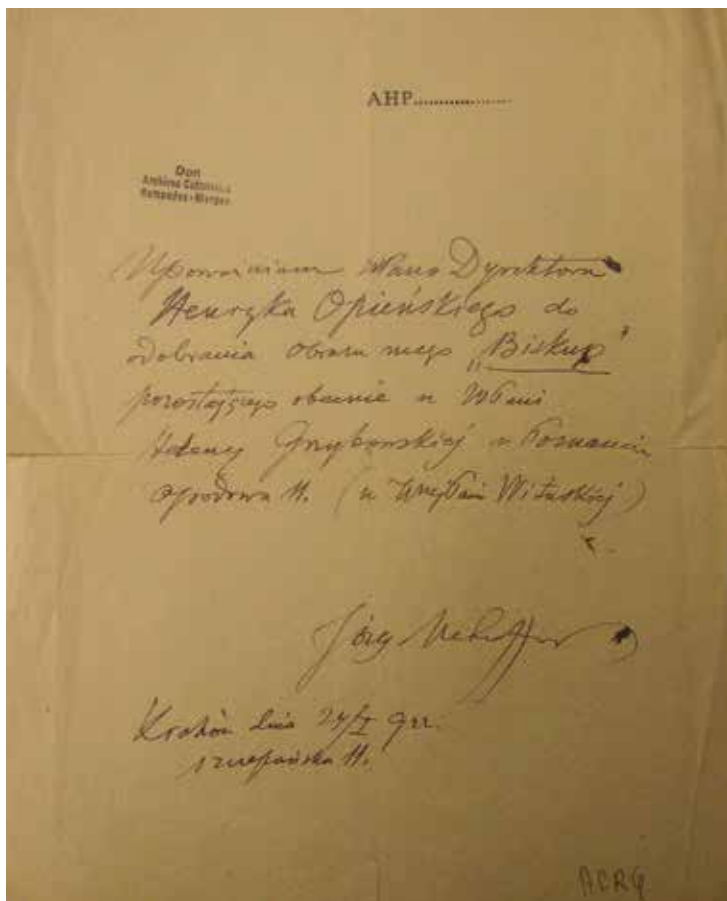 AHP....................
Don
Archives
Rampudes - Morges
Upoważniam WPana Dyrektora
Henryka Opieńskiego do
odebrania obrazu mego „Biskup”
pozostającego obecnie u WPani
Heleny Grzybowskiej w Poznaniu
Ogrodowa 11. (u WnejPani Wituskiej)
Józef Mehoffer
Kraków dnia 24/X 922.
Szczepańska 11.
ACRG